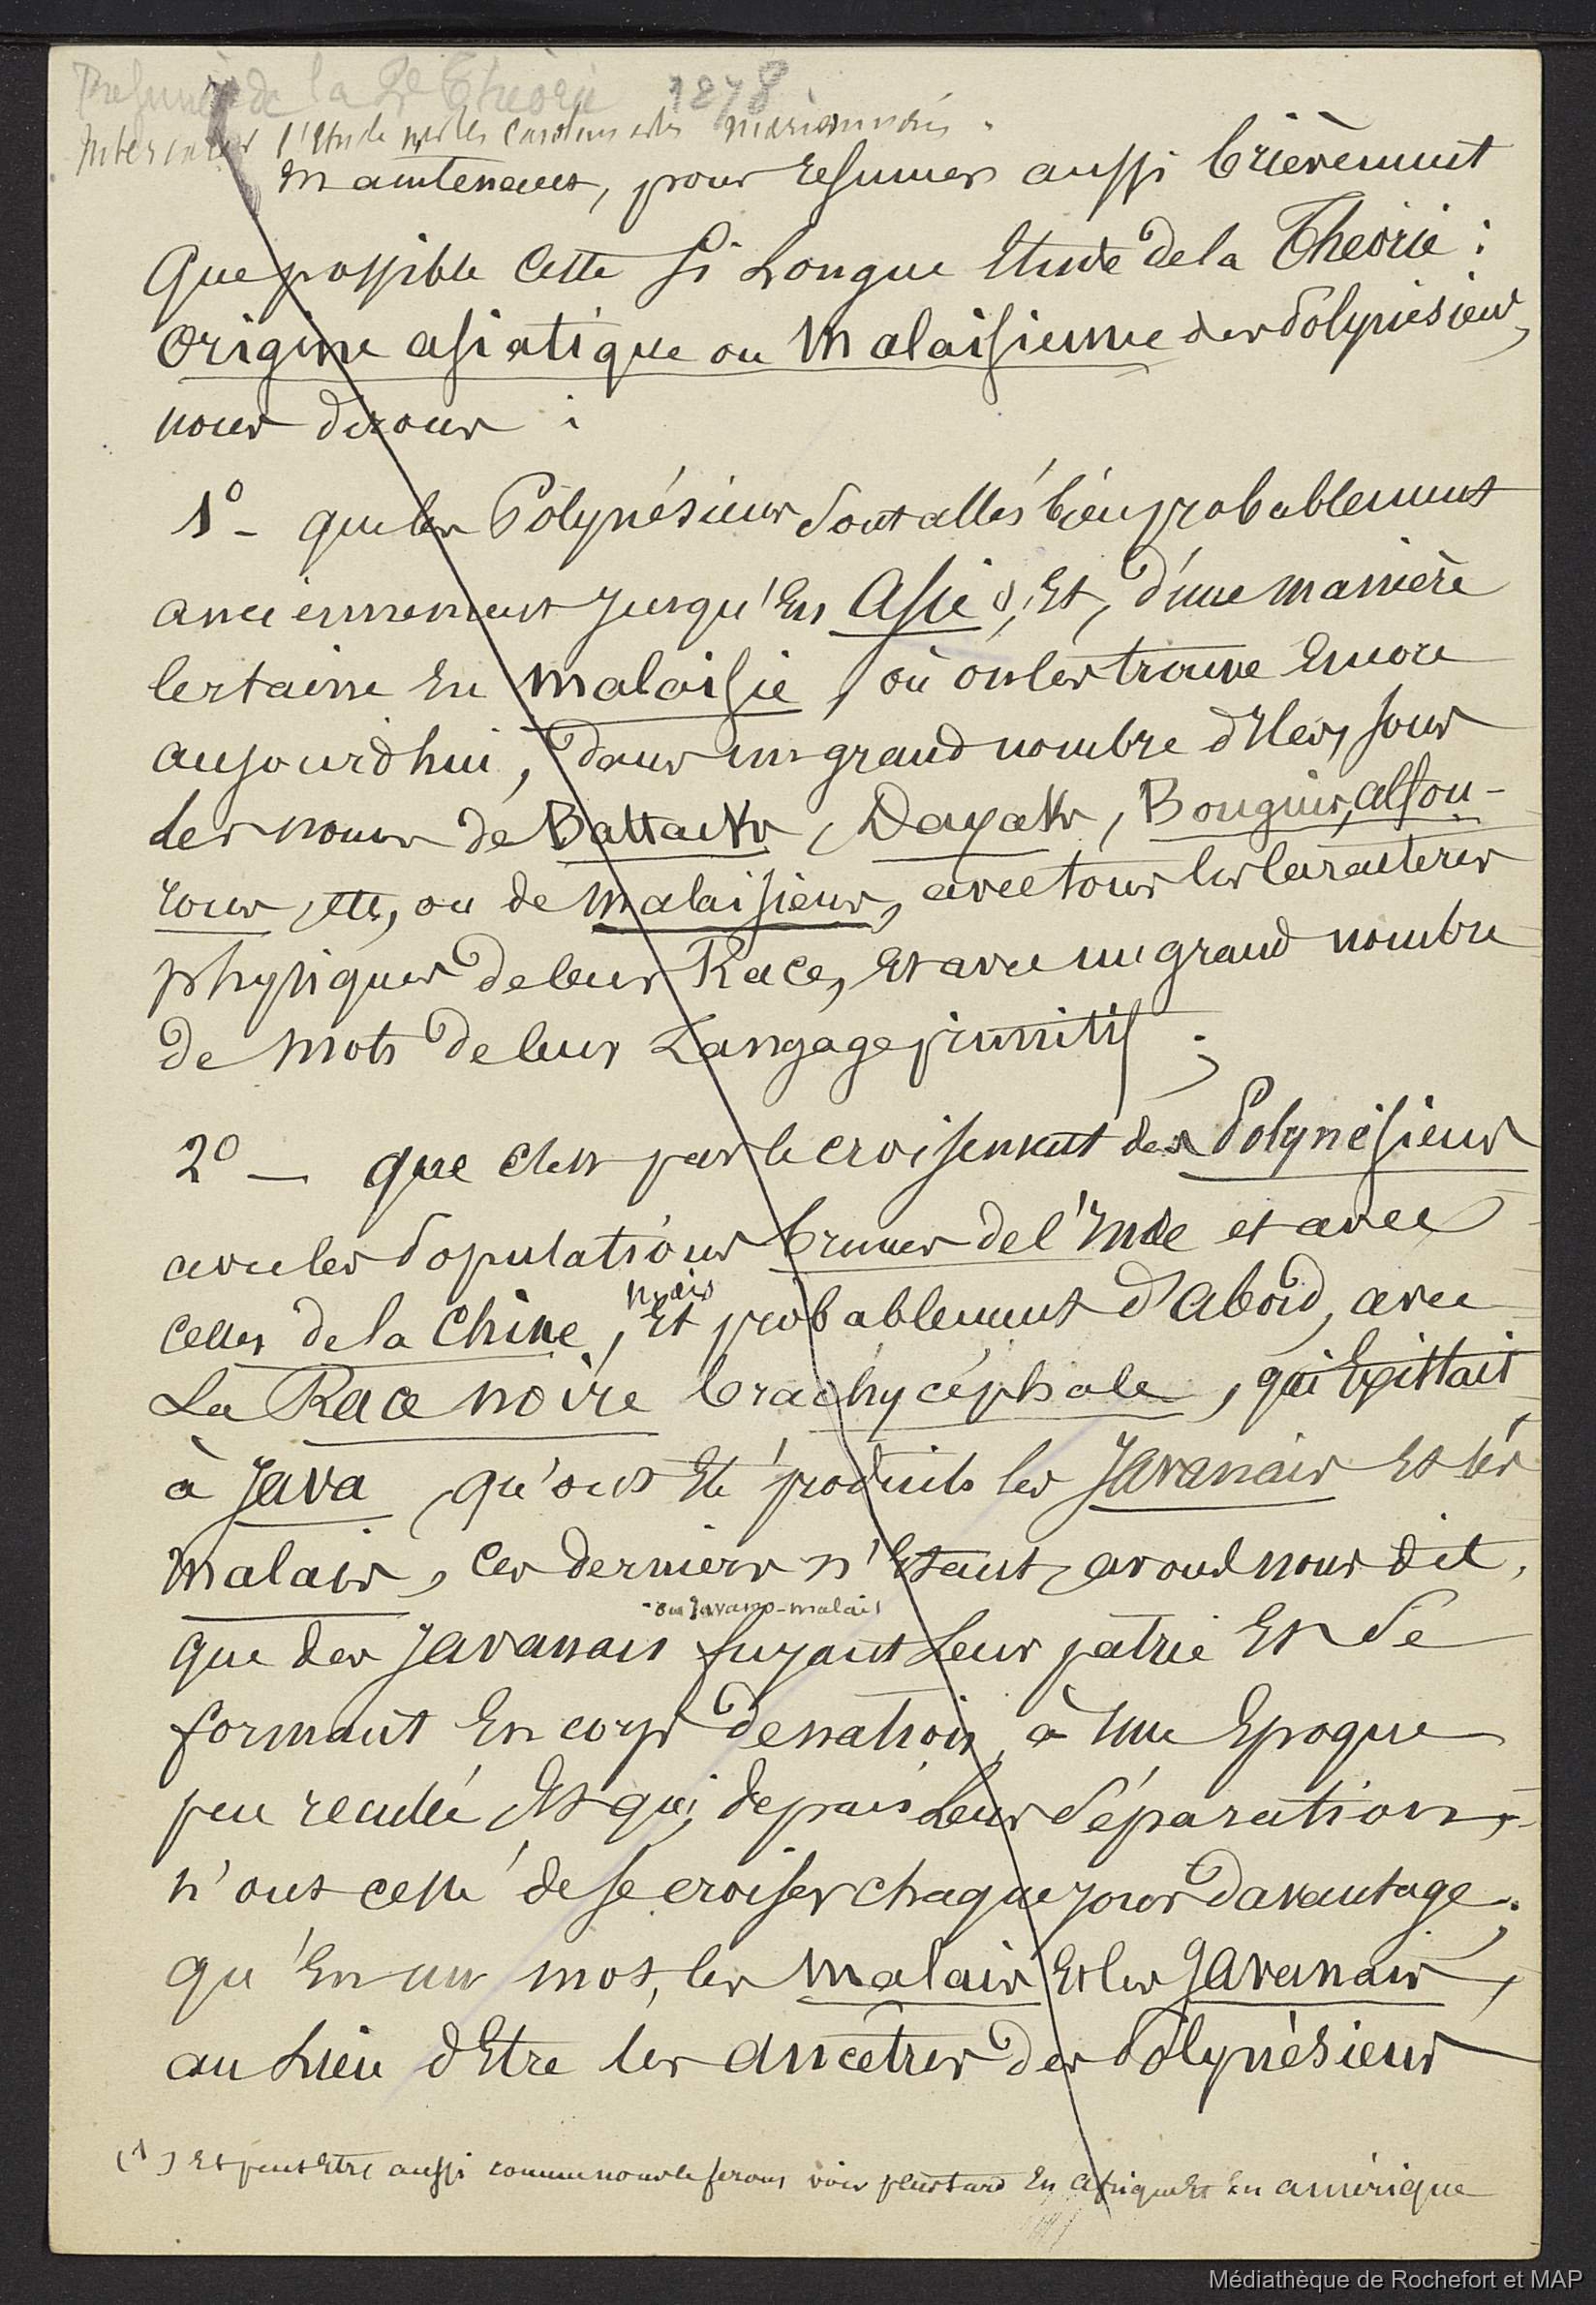 Résumé de la 2e Théorie 1878
Intercaler l'Etude sur les Carolines et les mariannais.
Maintenant, pour résumer aussi brièvement
que possible cette si longue Etude de la Théorie :
Origine asiatique ou Malaisienne des Polynésiens,
nous dirons :
1° - que les Polynésiens sont allés bien probablement
anciennement jusqu'en Asie (1), Et, d'une manière
certaine en Malaisie, où on les trouve Encore
aujourd'hui, dans un grand nombre d'Iles, sous
les noms de Battaks, Dayaks, Bouguis, alfou-
rous, etc, ou de Malaisiens, avec tous les caractères
physiques de leur Race, Et avec un grand nombre
de mots de leur Langage primitif ;
2° - que c'est par le croisement des Polynésiens
avec les populations brunes de l'Inde et avec
celles de la Chine, Et mais probablement d'abord, avec
La Race noire brachycéphale, qui Existait
à Java, qu'ont Eté produits les Javanais Et les
Malais, ces derniers n'Etant, avons nous dit,
- ou Javano-malais
que des Javanais fuyant Leur patrie Et se
formant En corps de nation, à une Epoque
peu reculée Et qui, depuis Leur séparation,
n'ont cessé de se croiser chaque jour davantage ;
qu'En un mot, les Malais Et les Javanais,
au Lieu d'Etre les ancêtres des Polynésiens
(1) Et peut Etre aussi comme nous le ferons voir plus tard En afrique Et En amérique
Médiathèque de Rochefort et MAP